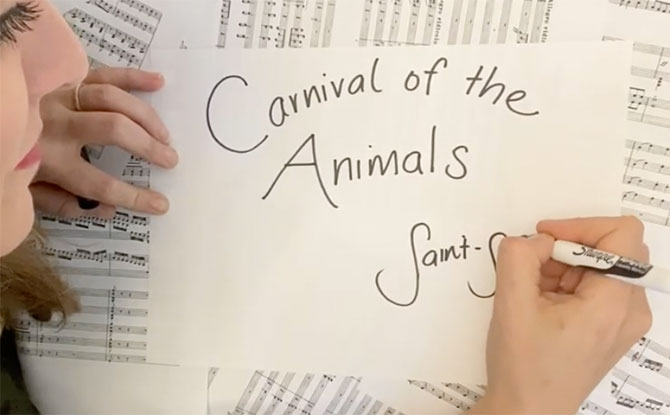 Carnival of the
Animals
Saint-S
Sharpie